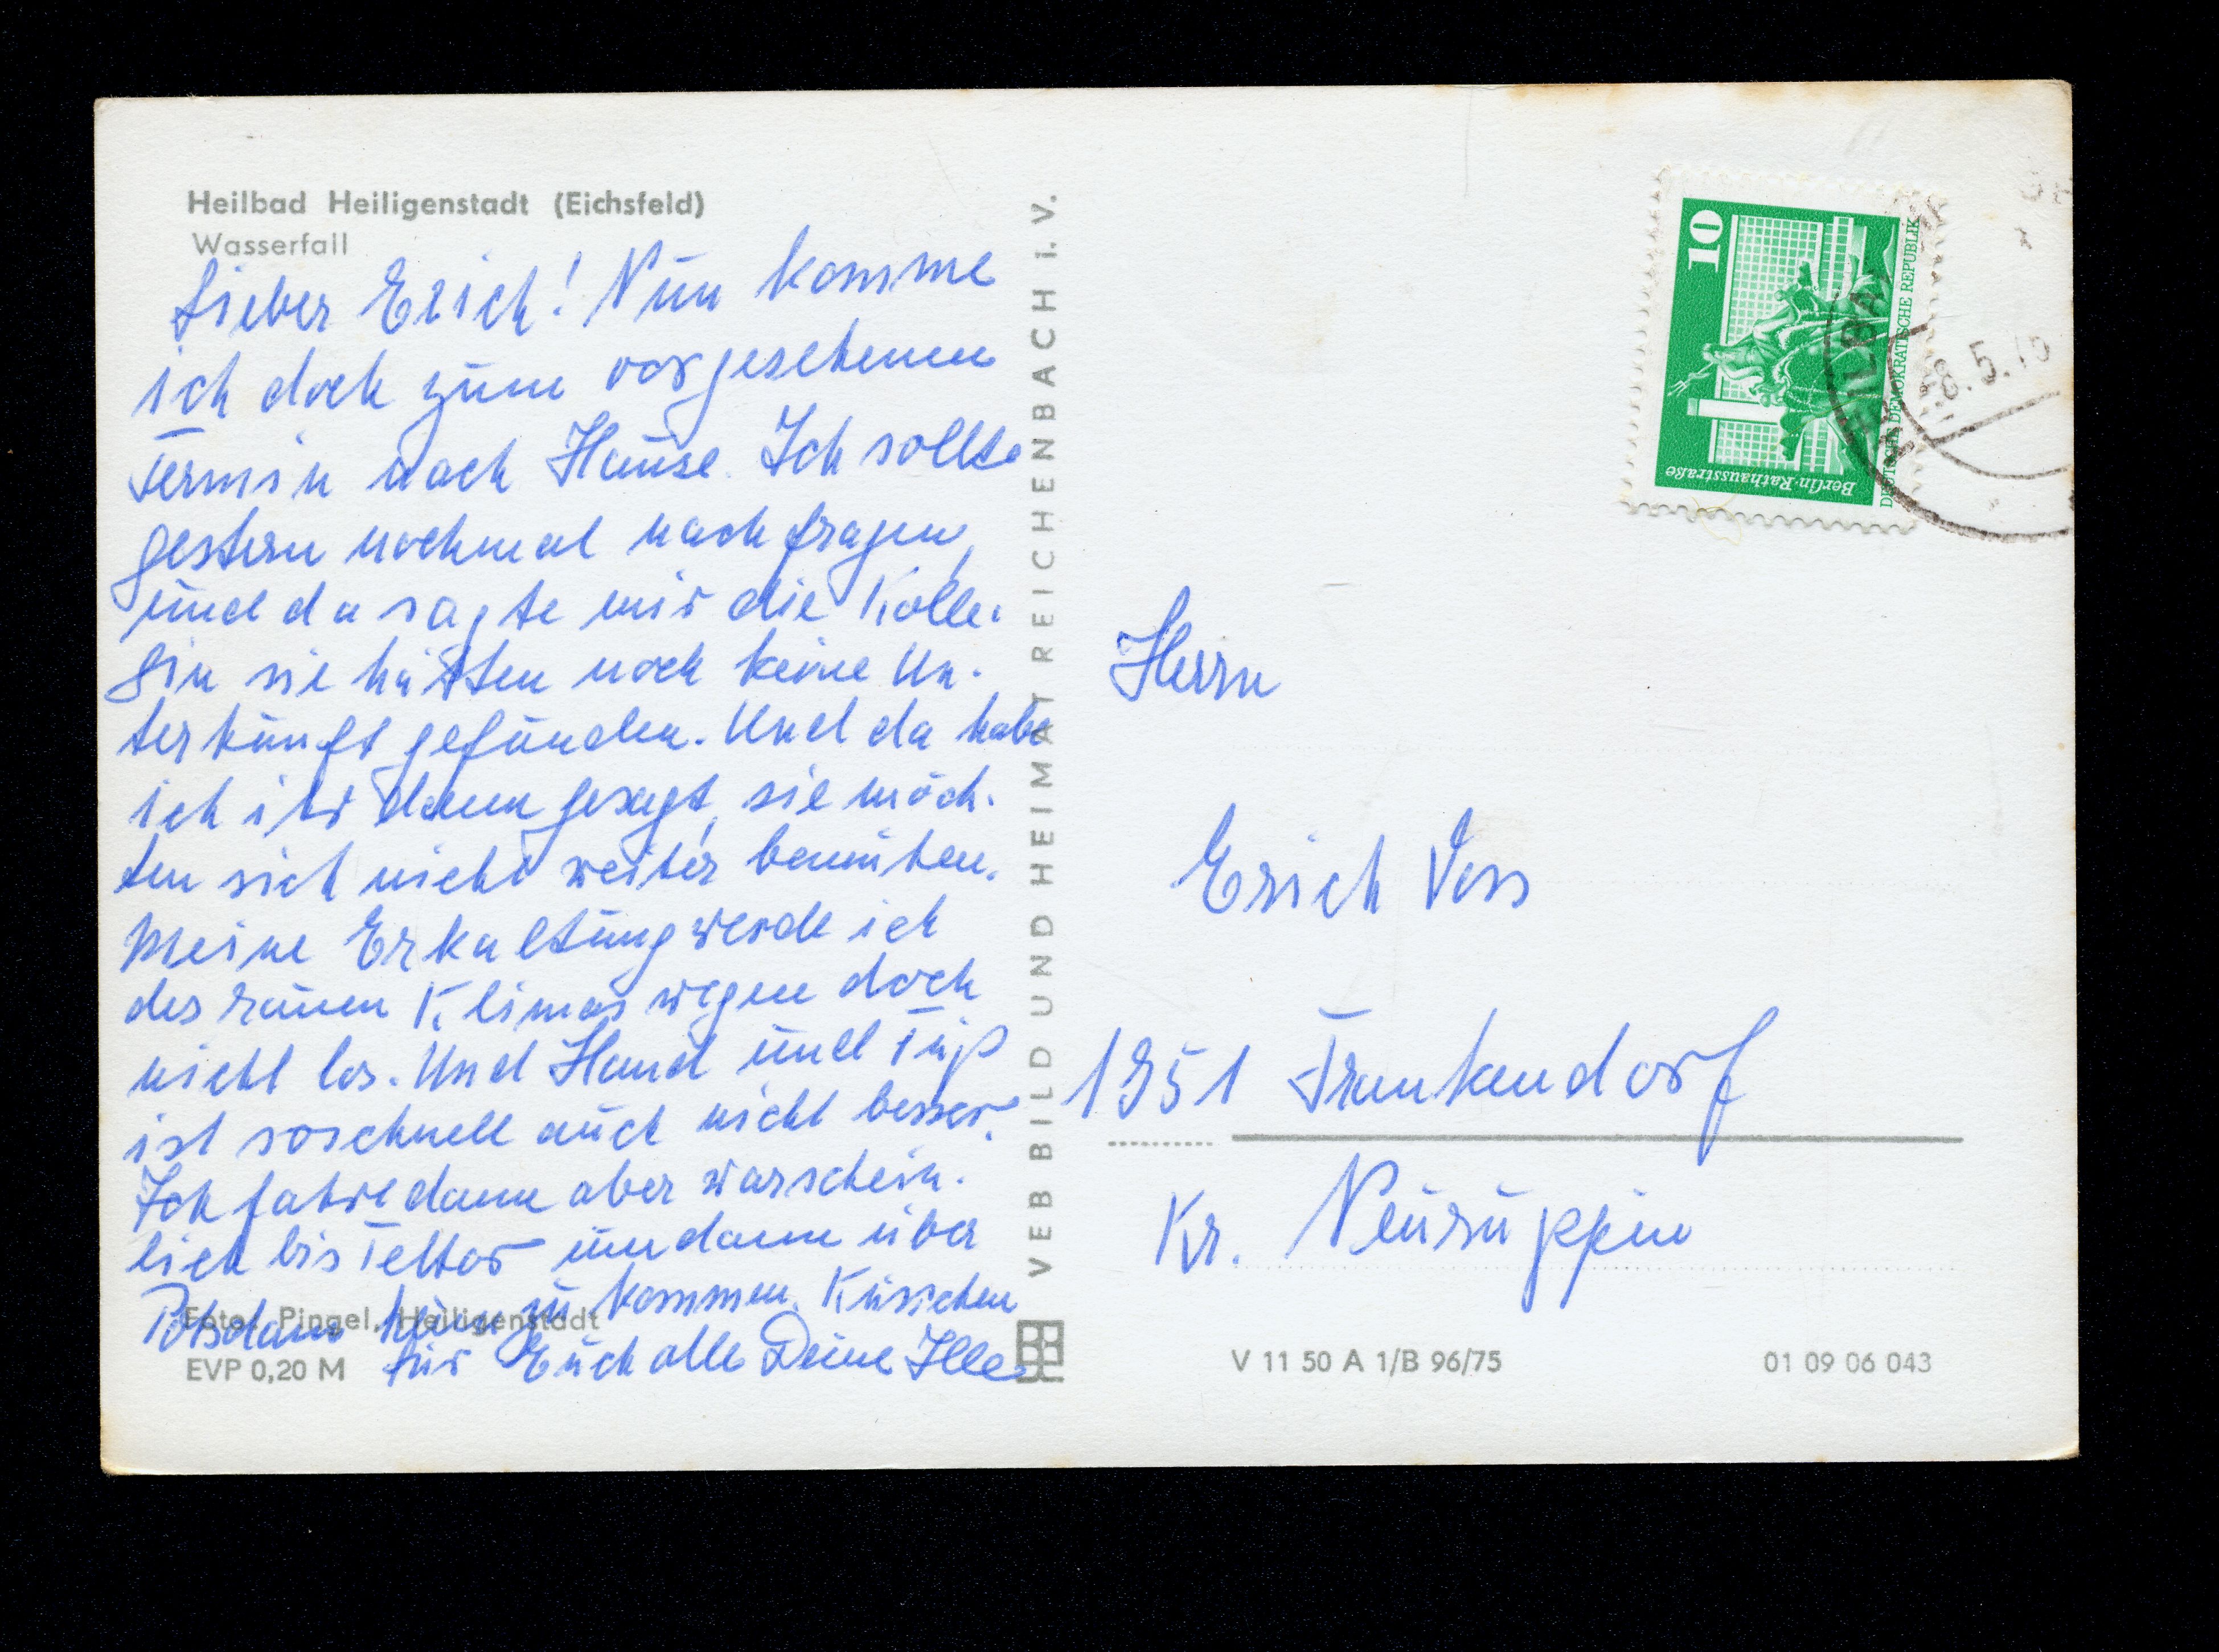 Heilbad Heiligenstadt (Eichsfeld)
Wasserfall
Lieber Erich! Nun komme
ich doch zum vorgesehenen
Termin nach Hause. Ich sollte
gestern nochmal nachfragen,
und da sagte mir die Kolle-
gin sie hätten noch keine Un-
terkunft gefunden. Und da habe
ich ihr dann gesagt, sie möch-
ten sich nicht weiter bemühen.
Meine Erkältung werde ich
des rauen Klimas wegen doch
nicht los. Und Hand und Fuß
ist soschnell auch nicht besser.
Ich fahre dann aber warschein-
lich bis Teltow um dann über
Potsdam zu kommen. Küsschen
für Euch alle Deine Ille
Foto: Pingel, Heiligenstadt
EVP 0,20 M
VEB BILD UND HEIMAT REICHENBACH i. V.
10
Berlin-Rathausstraße
DEUTSCHE DEMOKRATISCHE REPUBLIK
Herrn
Erich Voss
1951 Frankendorf
Kr. Neuruppin
V 11 50 A 1/B 96/75
01 09 06 043